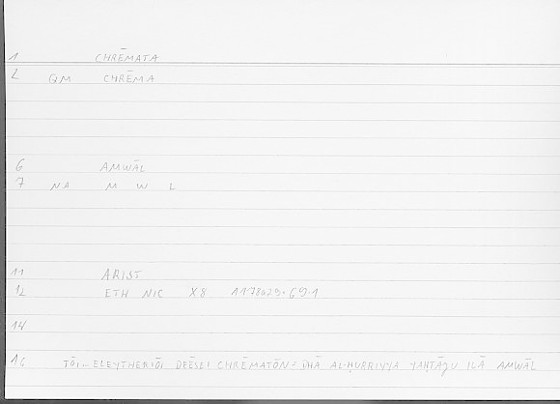 1 CHRĒMATA
2 QM CHRĒMA
6 AMWĀL
7 NA M W L
11 ARIST
12 ETH NIC X8 A1178A29.69.1
14
16 TŌI... ELEYTHERIŌI DEĒSEI CHRĒMATŌN = AL-ḤURRIYYA YAḤTĀǦU ILĀ AMWĀL